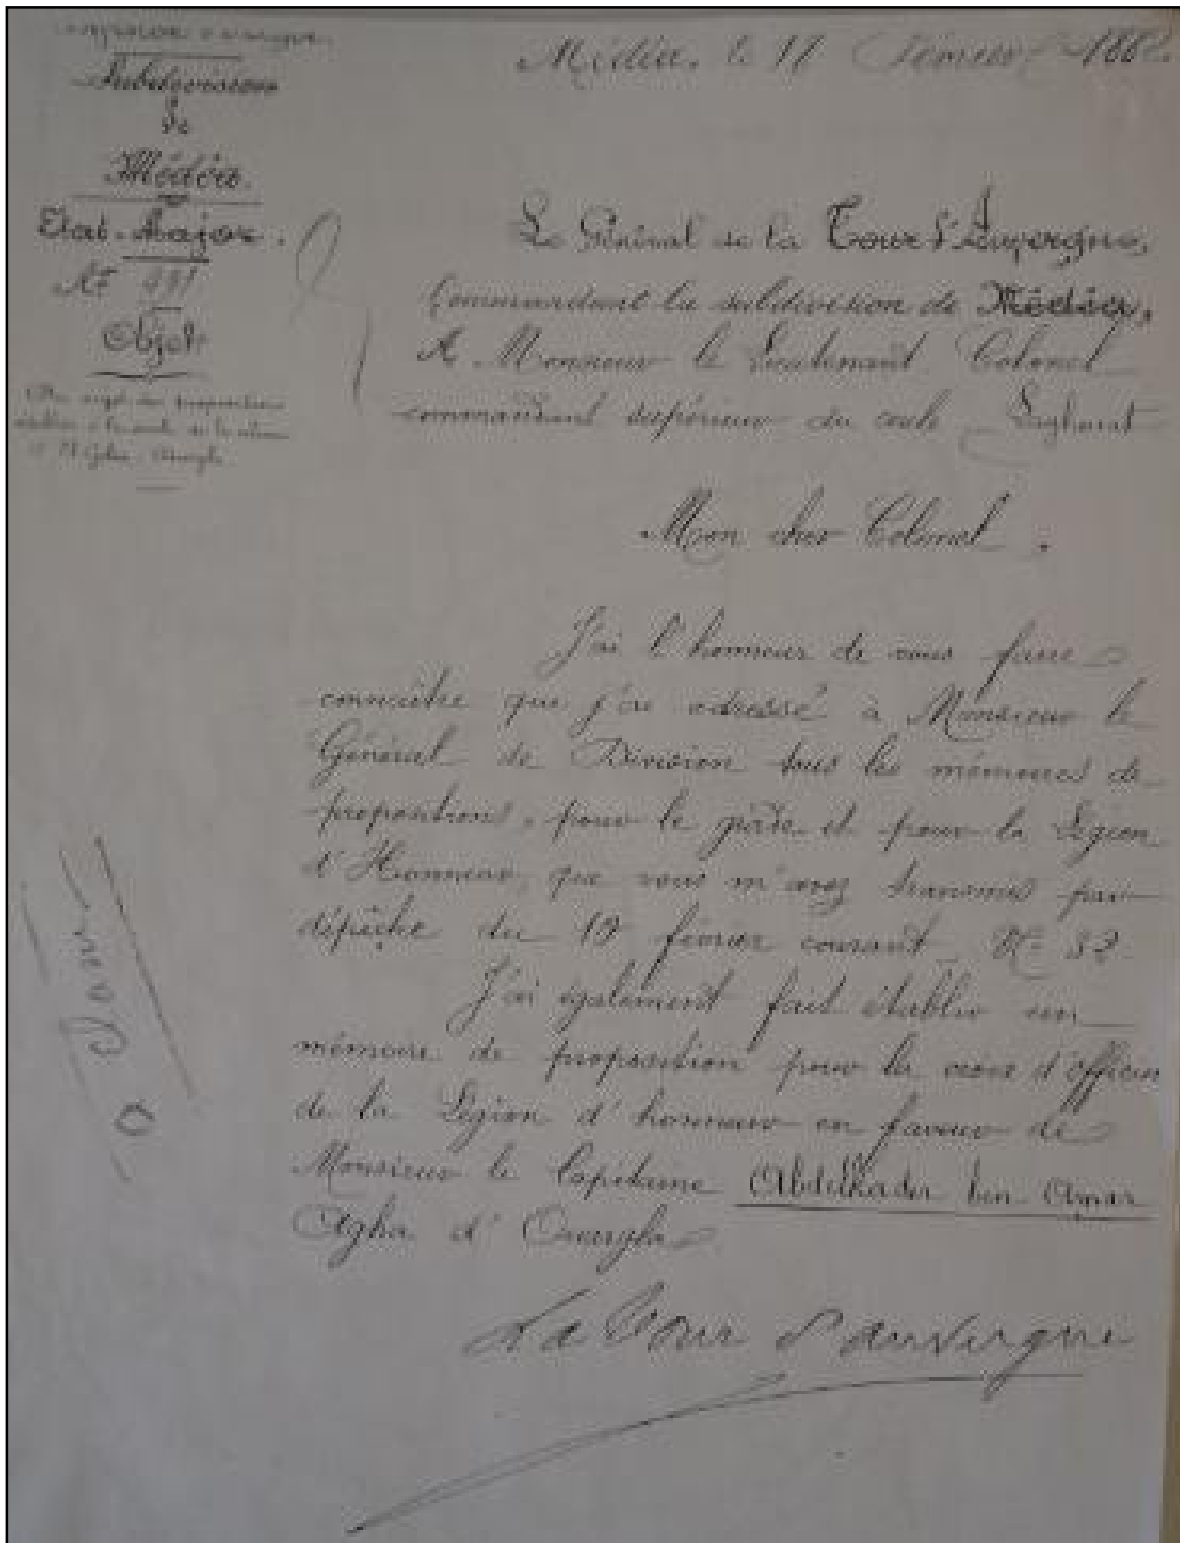 Subdivision
de
Médéa.
Etat-Major.
N°
Objet
Médéa, le
Le Général de la Tour d'Auvergne,
Commandant la subdivision de Médéa,
A Monsieur le Lieutenant Colonel
commandant supérieur du cercle Laghouat
Mon cher Colonel.
J'ai l'honneur de vous faire
connaître que j'ai adressé à Monsieur le
Général de Division tous les mémoires de
propositions, pour le grade et pour la Légion
d'Honneur, que vous m'avez transmis par
dépêche du février courant N° 32
J'ai également fait établir un
mémoire de proposition pour la croix d'officier
de la Légion d'honneur en faveur de
Monsieur le Capitaine Abdelkader bin Amar
Agha d'Ouargla
La Tour d'auvergne